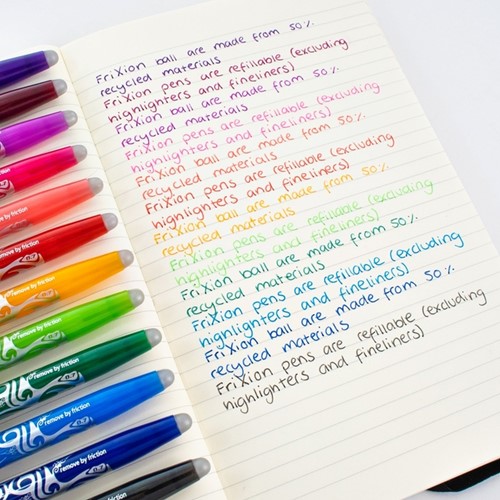 FriXion ball are made from 50%
recycled materials
FriXion pens are refillable (excluding
highlighters and fineliners)
FriXion ball are made from 50%
recycled materials
FriXion pens are refillable (excluding
highlighters and fineliners)
FriXion ball are made from 50%
recycled materials
FriXion pens are refillable (excluding
highlighters and fineliners)
FriXion ball are made from 50%
recycled materials
FriXion pens are refillable (excluding
highlighters and fineliners)
FriXion ball are made from 50%
recycled materials
FriXion pens are refillable (excluding
highlighters and fineliners)
FriXion ball are made from 50%
recycled materials
FriXion pens are refillable (excluding
highlighters and fineliners)
remove by friction
remove by friction
remove by friction
remove by friction
remove by friction
remove by friction
remove by friction
remove by friction
0.7
0.7
0.7